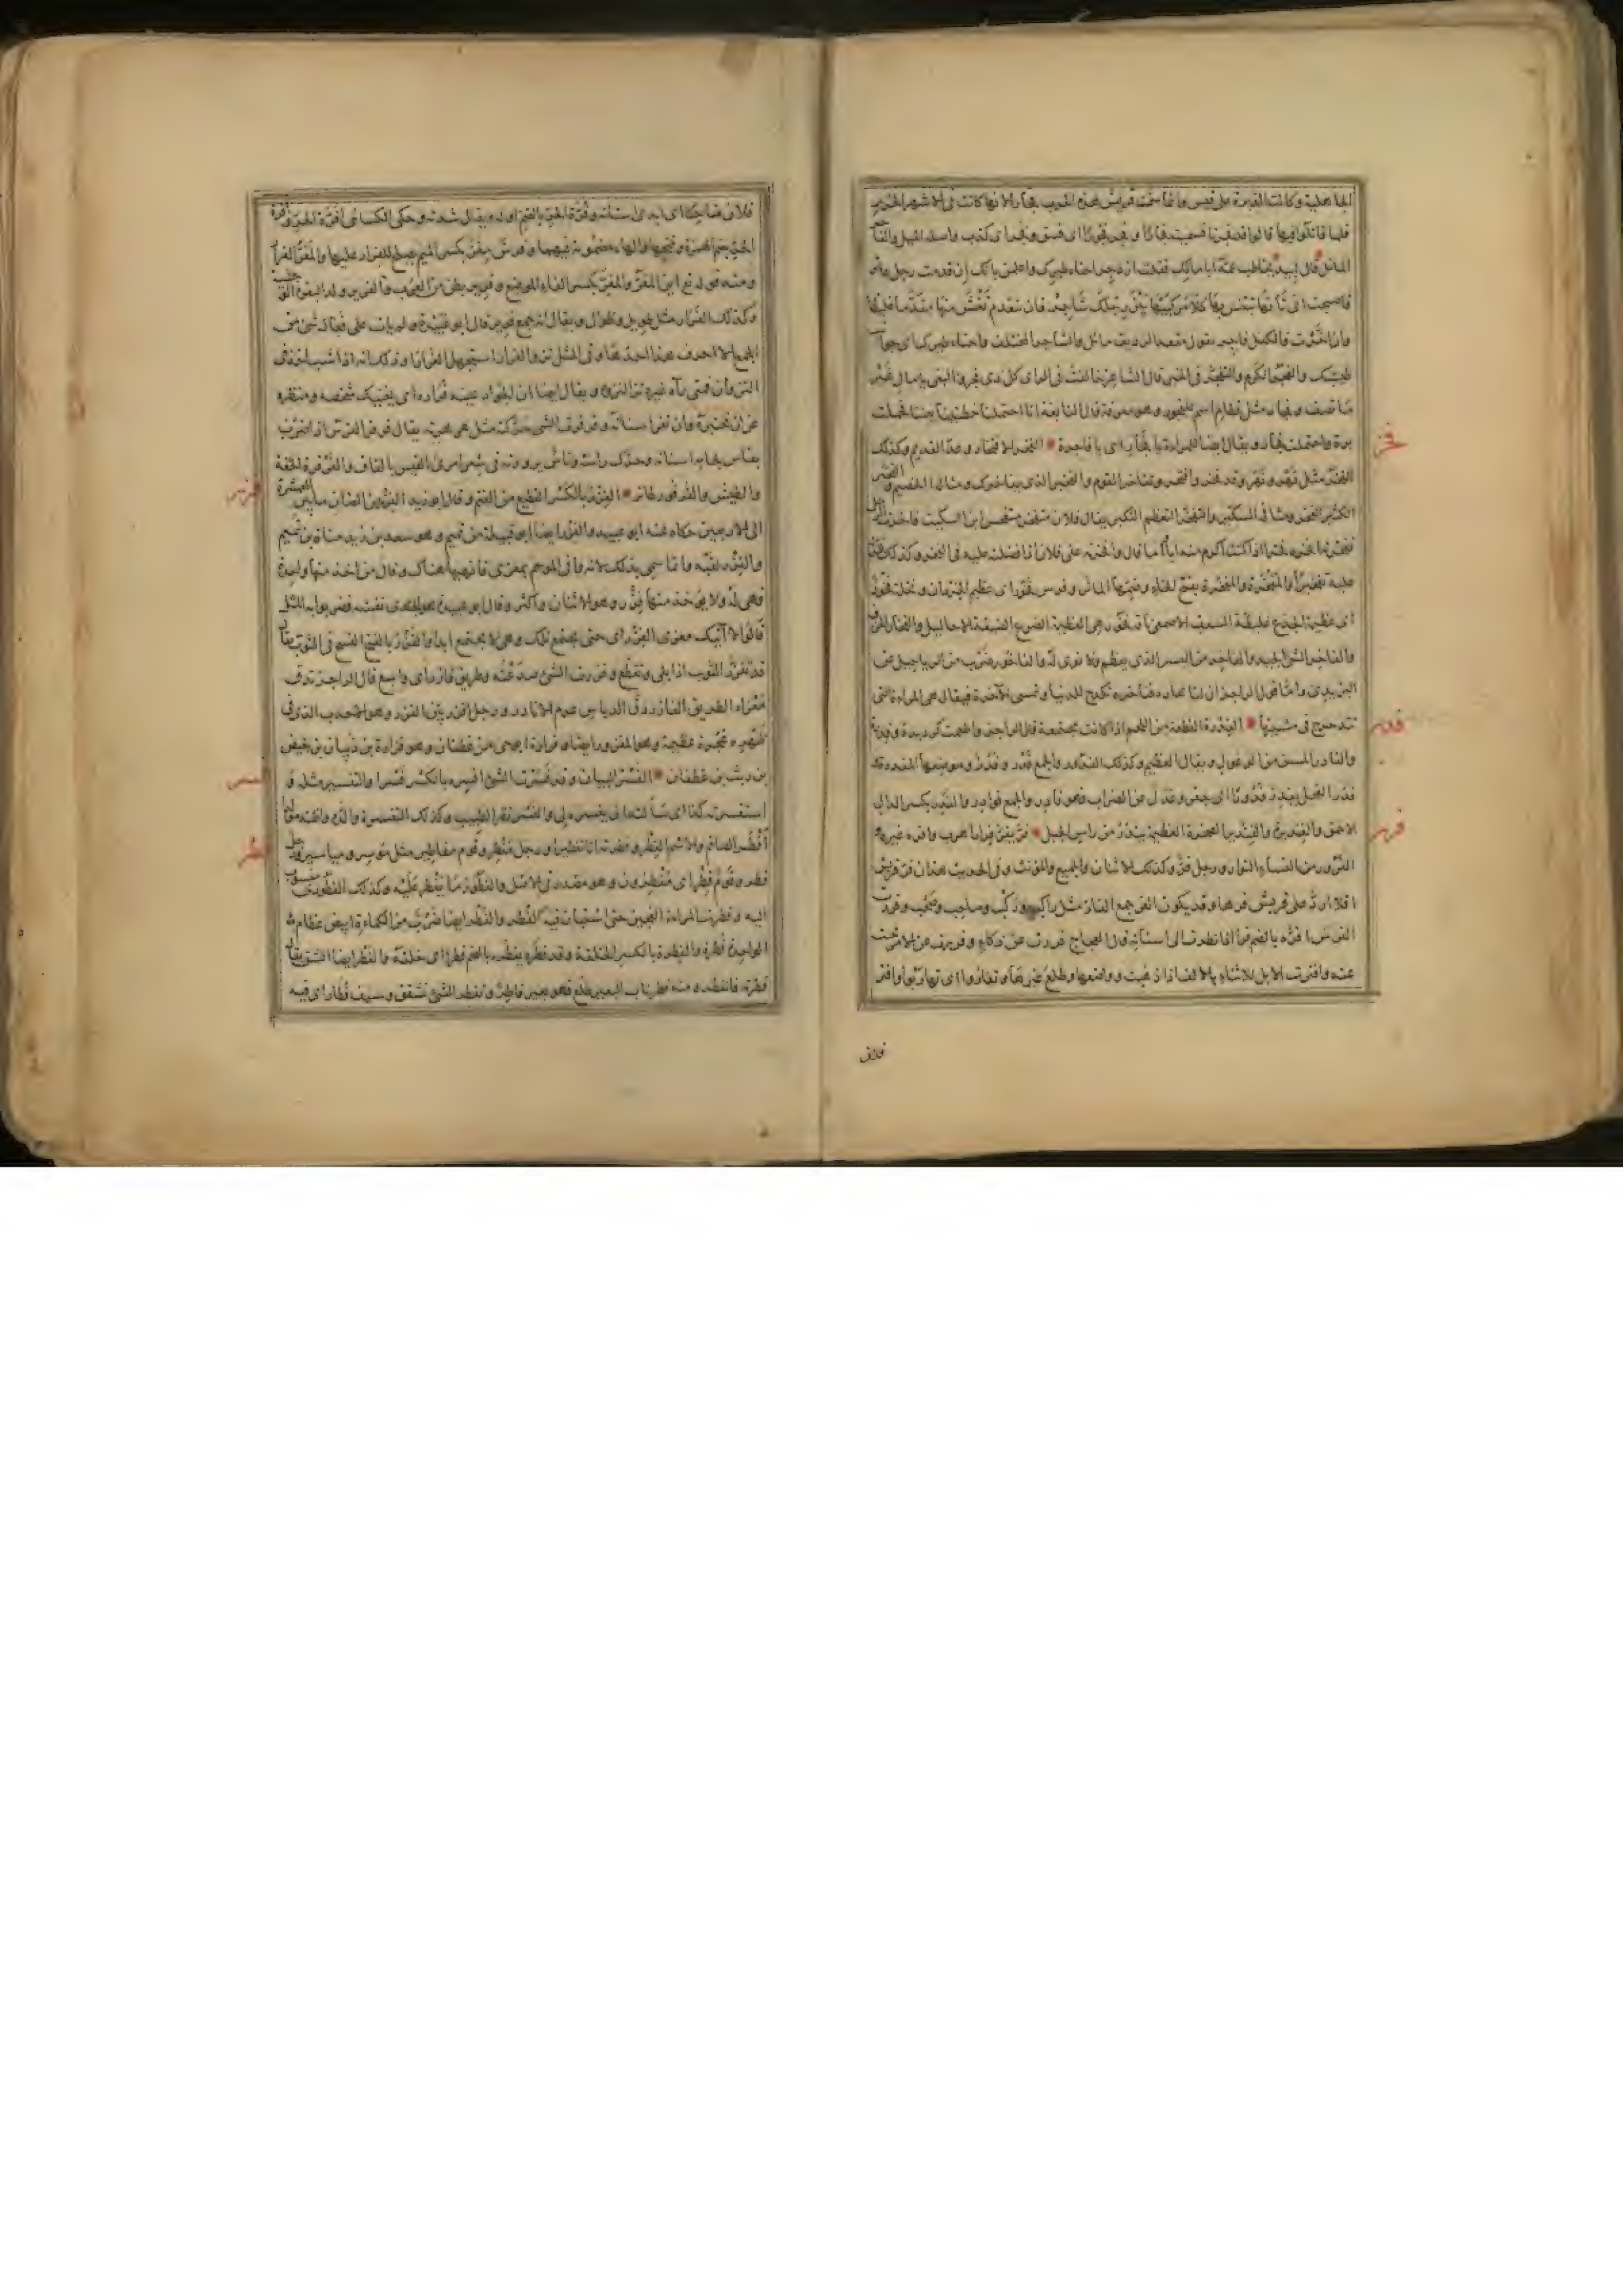 الجاهلية وكانت الدبرة على قيس وانما سمت قريش هذه الحرب فجارا لانها كانت فى الاشهر الحرم
فلما قاتلوا فيها قالوا قد فجرنا فسميت فجارا وفجر فجورا اى فسق وفجر اى كذب واصله الميل والفاجر
المائل قال لبيد يخاطب عمه ابا مالك فقلت ازدجر احناء طيرك واعلمن بانك ان قدمت رجلك عاثر
فاصبحت انى تاتها تبتئس بها كلا مركبيها تحت رجلك شاجر فان تتقدم تغش منها مقدما غليظا
وان اخرت فالكفل فاجر يقول مقعد الرديف مائل والشاجر المختلف واحناء طيرك اى جوانب
طيشك والفجر الكرم والتفجر فى الخير قال الشاعر
ما تصف وفجار مثل قطام اسم للفجور وهو معرفة قال النابغة انا احتملنا خطتينا بيننا فحملت
برة واحتملت فجار ويقال ايضا للمراة يا فجار اى يا فاجرة * الفخر الافتخار وعد القديم وكذلك
الفخر مثل نهر ونهر وقد فخر وافتخر وتفاخر القوم والفخير الذى يفاخرك ومثاله الخصيم والفخير
الكثير الفخر ومثاله السكير والتفخر التعظم والتكبر يقال فلان متفخر متفجس ابن السكيت فاخرت الرجل
ففخرته افخره فخرا اذا كنت اكرم منه ابا واما قال وافخرته على فلان اذا فضلته عليه فى الفخر وكذلك فخرته
عليه تفخيرا والمفخرة والمفخرة بفتح الخاء وضمها الماثرة وفرس فخور اى عظيم الجردان ونخلة فخور
اى عظيمة الجذع غليظة السعف الاصمعى ناقة فخور وهى العظيمة الضرع الضيقة الاحاليل والفخار الخزف
والفاخر الشئ الجيد والفاخر من البسر الذى يعظم ولا نوى له والفاخور ضرب من الرياحين عن
ابن دريد واما قول الراجز ان لنا لجارة فناخره تكدح للدنيا وتنسى الآخرة فيقال هى المراة التى
تتدحرج فى مشيتها * الفدرة القطعة من اللحم اذا كانت مجتمعة قال الراجز واطعمت كرديدة وفدرة
والفادر المسن من الوعول ويقال العظيم وكذلك الفدور والجمع فدر وفدر وموضعها المفدرة
فدر الفحل يفدر فدورا اى جفر وعدل عن الضراب فهو فادر والجمع فوادر والفدر بكسر الدال
الاحمق والفنديرة والفندير الصخرة العظيمة تندر من راس الجبل * فر يفر فرارا هرب وافره غيره
الفرور من النساء النوار ورجل فر وكذلك الاثنان والجميع والمونث وفى الحديث هذان فر قريش
افلا ارد على قريش فرها وقد يكون الفر جمع الفار مثل راكب وركب وصاحب وصحب وفررت
الفرس افره بالضم فرا اذا نظرت الى اسنانه قال الحجاج فررت عن ذكاء وفر عن الامر بحث
عنه وافرت الابل للاثناء بالالف اذا ذهبت رواضعها وطلع غيرها وتفاروا اى تهاربوا وافتر
فلان
فلان ضاحكا اى ابدى اسنانه وفرة الحر بالضم اوله ويقال شدته وحكى الكسائى افرة الحر وافرة
ومنه قوله تع اين المفر والمفر بكسر الفاء الموضع
وكذلك الفرار مثل طويل وطوال ويقال انه جمع فرير قال ابو عبيدة ولم يات على فعال شئ من
الجمع الا احرف هذا احدها وفى المثل نزو الفرار استجهل الفرارا وذلك انه اذا شب اخذ فى
النزوان فمتى رآه غيره نزا لنزوه ويقال ايضا ان الجواد عينه فراره اى يغنيك شخصه ومنظره
عن ان تختبره وان تفر اسنانه وفرفرت الشئ حركته مثل هرهرته يقال فرفر الفرس اذا ضرب
بفاس لجامه اسنانه وحرك راسه وناس يروونه فى شعر امرئ القيس بالقاف والفرفرة الخفة
والطيش والفرفور طائر * الفزر بالكسر القطيع من الغنم وقال ابو زيد الفزر من الضان ما بين العشرة
الى الاربعين حكاه عنه ابو عبيد والفزر ايضا ابو قبيلة من تميم وهو سعد بن زيد مناة بن تميم
والفزر لقبه وانما سمى بذلك لانه وافى الموسم بمعزى فانهبها هناك وقال من اخذ منها واحدة
فهى له ولا يؤخذ منها فزر وهو الاثنان واكثر وقال ابو عبيدة هو الجدى نفسه فضربوا به المثل
فقالوا لا آتيك معزى الفزر اى حتى يجتمع تلك وهى لا يجتمع ابدا والفزر بالفتح الفسخ فى الثوب يقال
قد تفزر الثوب اذا بلى وتقطع وفزرت الشئ صدعته وطريق فازر اى واسع قال الراجز تدق
معزاء الطريق الفازر دق الدياس عرم الانادر ورجل افزر بين الفزر وهو الاحدب الذى فى
ظهره عجرة عظيمة وهو المفزور ايضا وفزارة ابو حى من غطفان وهو فزارة بن ذبيان بن بغيض
بن ريث بن غطفان * الفسر البيان وقد فسرت الشئ افسره بالكسر فسرا والتفسير مثله و
استفسرته كذا اى سالته ان يفسره لى والفسر نظر الطبيب وكذلك التفسرة
افطر الصائم والاسم الفطر وفطرته انا تفطيرا ورجل مفطر وقوم مفاطير مثل موسر ومياسير ورجل
فطر وقوم فطر اى مفطرون وهو مصدر فى الاصل والفطور ما يفطر عليه وكذلك الفطورى منسوب
اليه وفطرت المراة العجين حتى استبان فيه الفطر والفطر ايضا ضرب من الكماة ابيض عظام
الواحدة فطرة والفطرة بالكسر الخلقة وقد فطره يفطره بالضم فطرا اى خلقه والفطر ايضا الشق يقال
فطرته فانفطر ومنه فطر ناب البعير طلع فهو بعير فاطر وتفطر الشئ تشقق وسيف فطار اى فيه
فخر
فدر
فرر
فزر
فسر
فطر